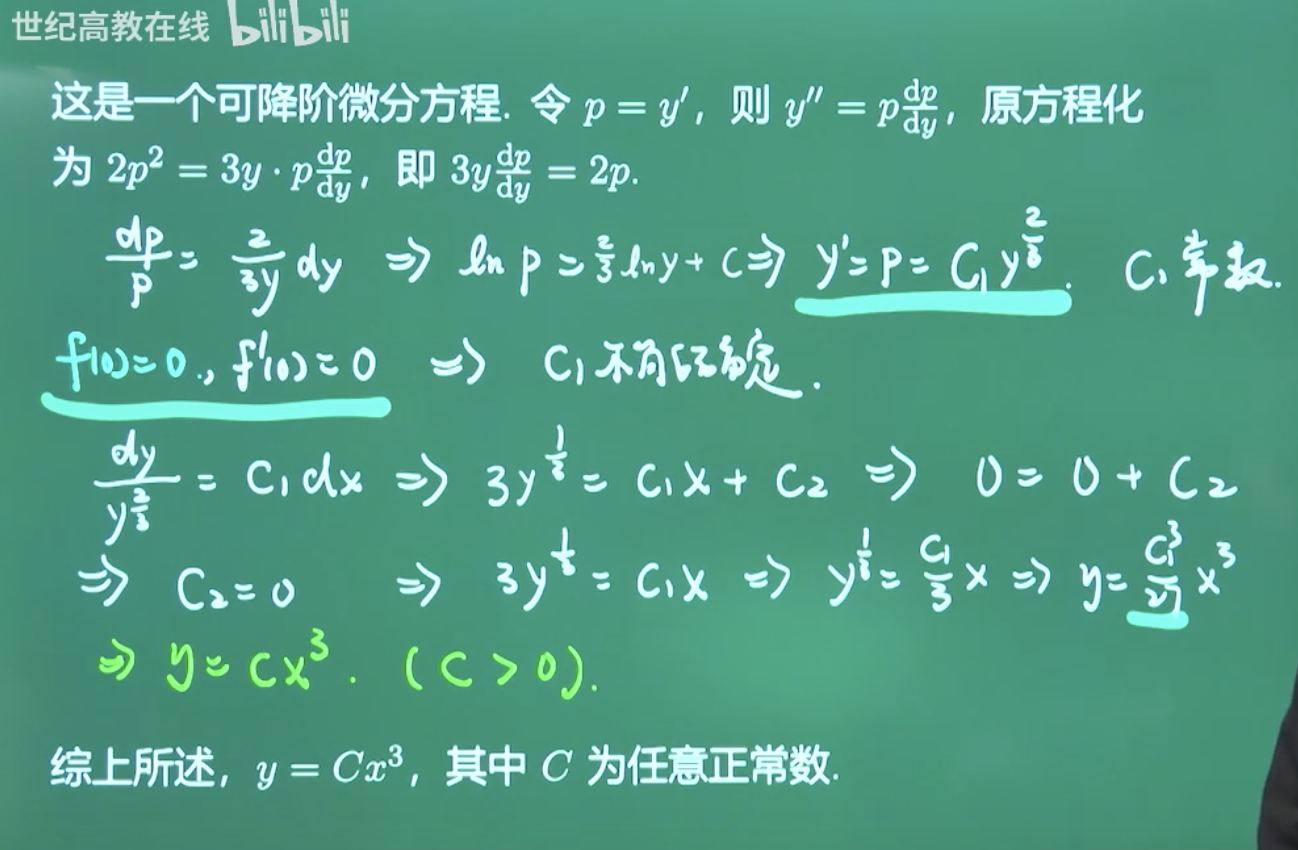 世纪高教在线 bilibili
这是一个可降阶微分方程. 令 p = y′, 则 y″ = p dp/dy, 原方程化
为 2p² = 3y · p dp/dy, 即 3y dp/dy = 2p.
dp/p = 2/3y dy ⇒ ln p = 2/3 ln y + C ⇒ y′ = p = C₁y^(2/3). C₁常数.
f(0)=0., f′(0)=0 ⇒ C₁不能确定.
dy/y^(2/3) = C₁dx ⇒ 3y^(1/3) = C₁x + C₂ ⇒ 0 = 0 + C₂
⇒ C₂=0 ⇒ 3y^(1/3) = C₁x ⇒ y^(1/3) = C₁/3 x ⇒ y = C₁³/27 x³
⇒ y = Cx³. (C > 0).
综上所述, y = Cx³, 其中 C 为任意正常数.